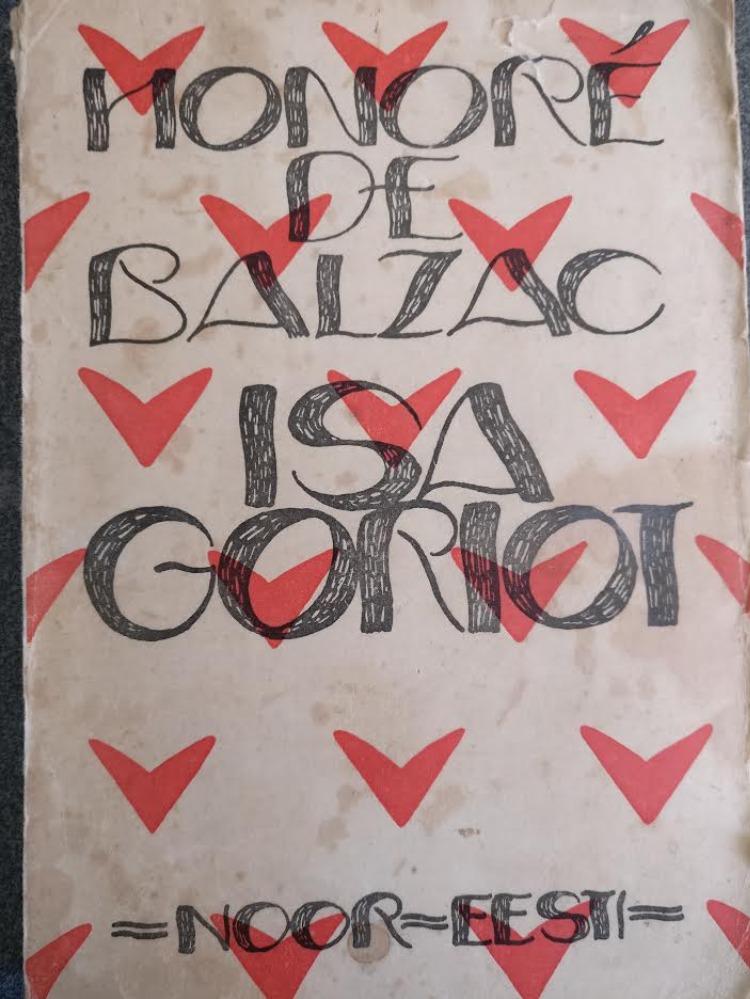 HONORÉ
DE
BALZAC
ISA
GORIOT
=NOOR=EESTI=